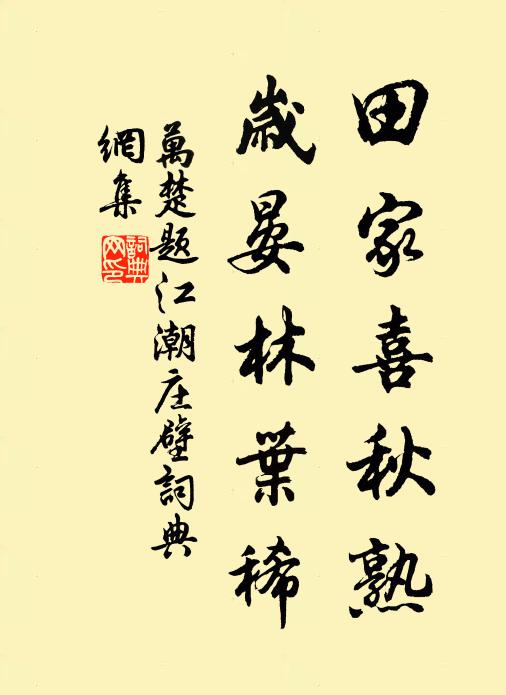 田家喜秋熟
歲晏林葉稀
萬楚題江潮庄壁詞典
網集
詞典網印